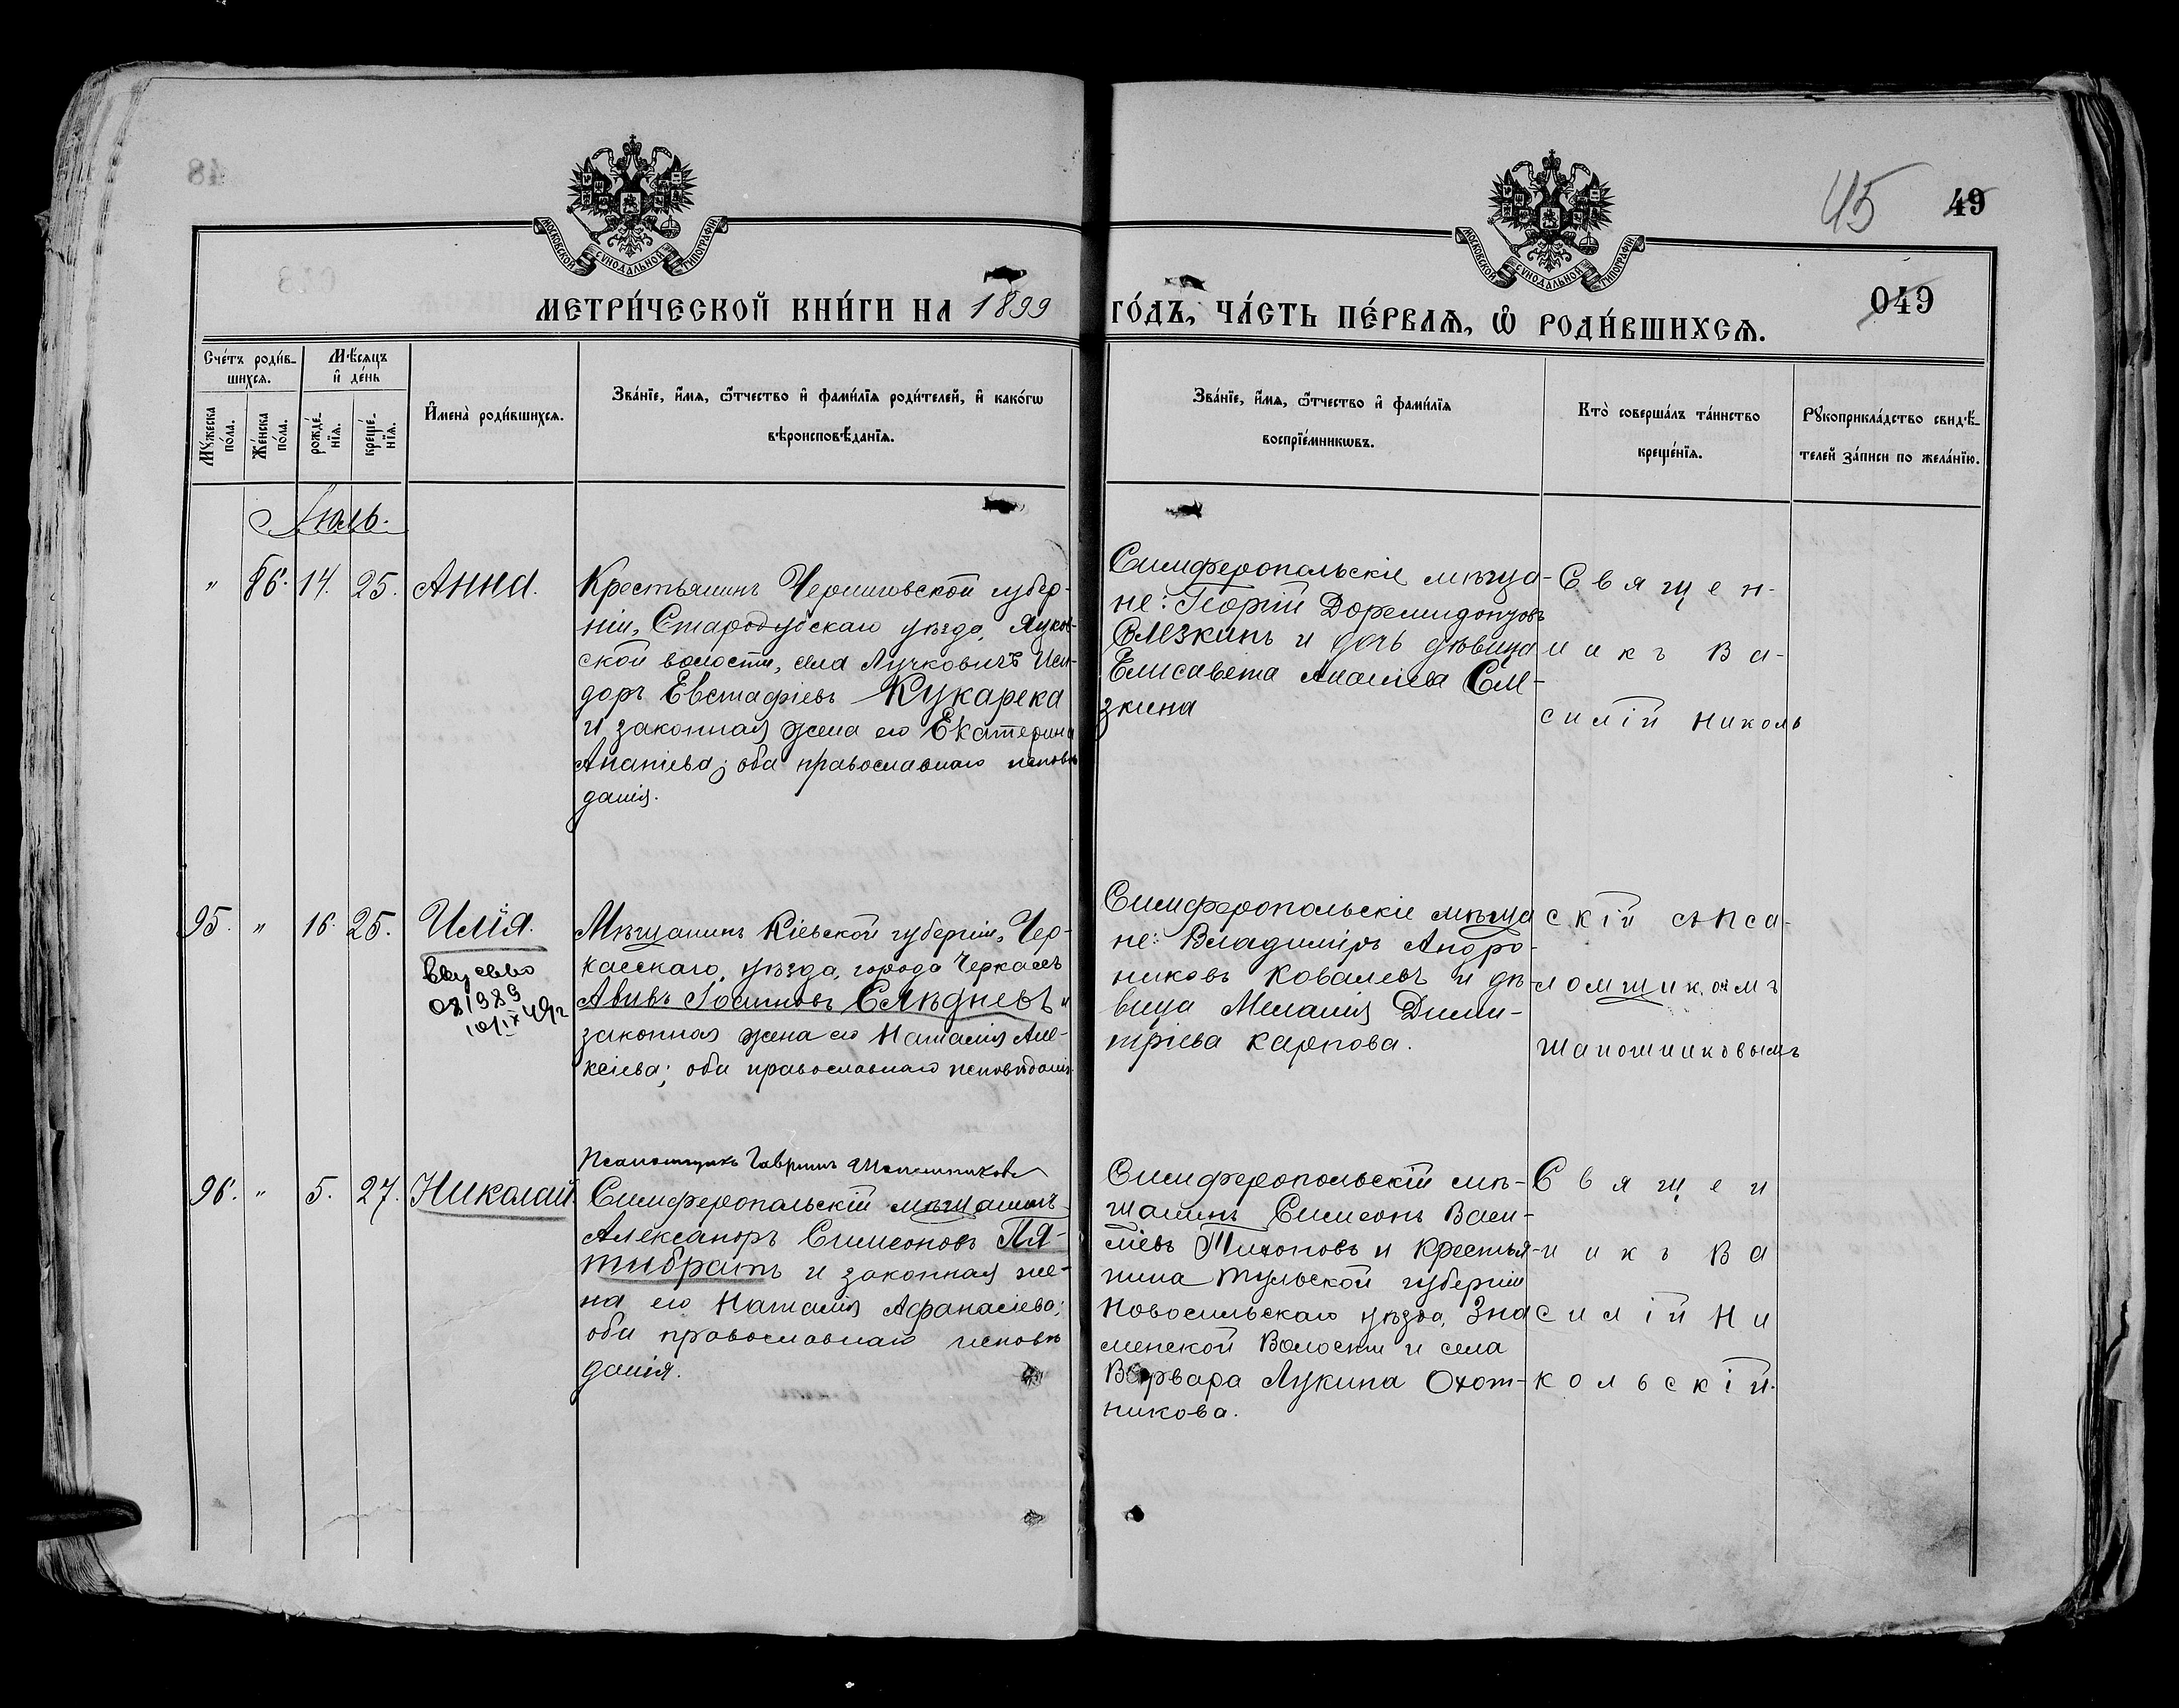 48
45
49
049
МОСКОВСКОЙ СѴНОДАЛЬНОЙ ТИПОГРАФІИ
МОСКОВСКОЙ СѴНОДАЛЬНОЙ ТИПОГРАФІИ
МЕТРИ́ЧЕСКОЙ КНИ́ГИ НА 1899
ГО́ДЪ, ЧА́СТЬ ПЕ́РВАѦ, Ѽ РОДИ́ВШИХСѦ.
Сче́тъ роди́в-
шихсѧ.
Мѣ́сѧцъ
и҆ де́нь
Мꙋжеска
по́ла.
Же́нска
по́ла.
рожде́-
нїѧ.
креще́-
нїѧ.
И҆мена̀ роди́вшихсѧ.
Зва́нїе, и҆́мѧ, ѻ҆́тчество и҆ фами́лїѧ роди́телей, и҆ како́гѡ
вѣроисповѣ́данїѧ.
Зва́нїе, и҆́мѧ, ѻ҆́тчество и҆ фами́лїѧ
воспрїе́мникѡвъ.
Кто̀ соверша́лъ та́инство
креще́нїѧ.
Рꙋкоприкла́дство свидѣ́-
телей за́писи по жела́нїю.
Іюль.
" 86. 14. 25. Анна.
Крестьянинъ Черниговской губер-
ніи, Стародубскаго уѣзда,
ской волости, села Лучковичъ Иси-
доръ Евстафіевъ Кукарека
и законная жена его Екатерина
Ананіева; оба православнаго исповѣ
данія.
Симферопольскіе мѣща-
не: Георгій Доремидонтовъ
Слезкинъ и дочь дѣвица
Елисавета Слѣ-
зкина
Священ-
никъ Ва-
силій Николь
95. " 16. 25. Илія.
Мѣщанинъ Кіевской губерніи, Чер-
касскаго, уѣзда, города Черкасъ
Авивъ Іоанновъ Слѣдневъ и
законная жена его Наталія Але-
ксіева; оба православнаго исповѣданія
Симферопольскіе мѣща
не: Владиміръ Андро-
никовъ Ковалевъ и дѣ-
вица Меланія Дими-
тріева Карпова.
скій съ пса-
ломщикомъ
Шапошниковымъ
Псаломщикъ Гавріилъ Шапошниковъ
96. " 5. 27. Николай
Симферопольскій мѣщанинъ
Александръ Симеоновъ Пя-
тибратъ и законная же-
на его Наталія Афанасіева;
оба православнаго исповѣ
данія.
Симферопольскій мѣ-
щанинъ Симеонъ Васи-
ліевъ Тихоновъ и крестья-
нина Тульской губерніи
Новосильскаго уѣзда, Зна
менской Волости и села
Варвара Лукина Охот-
никова.
Священ
никъ Ва
силій Ни
кольскій.